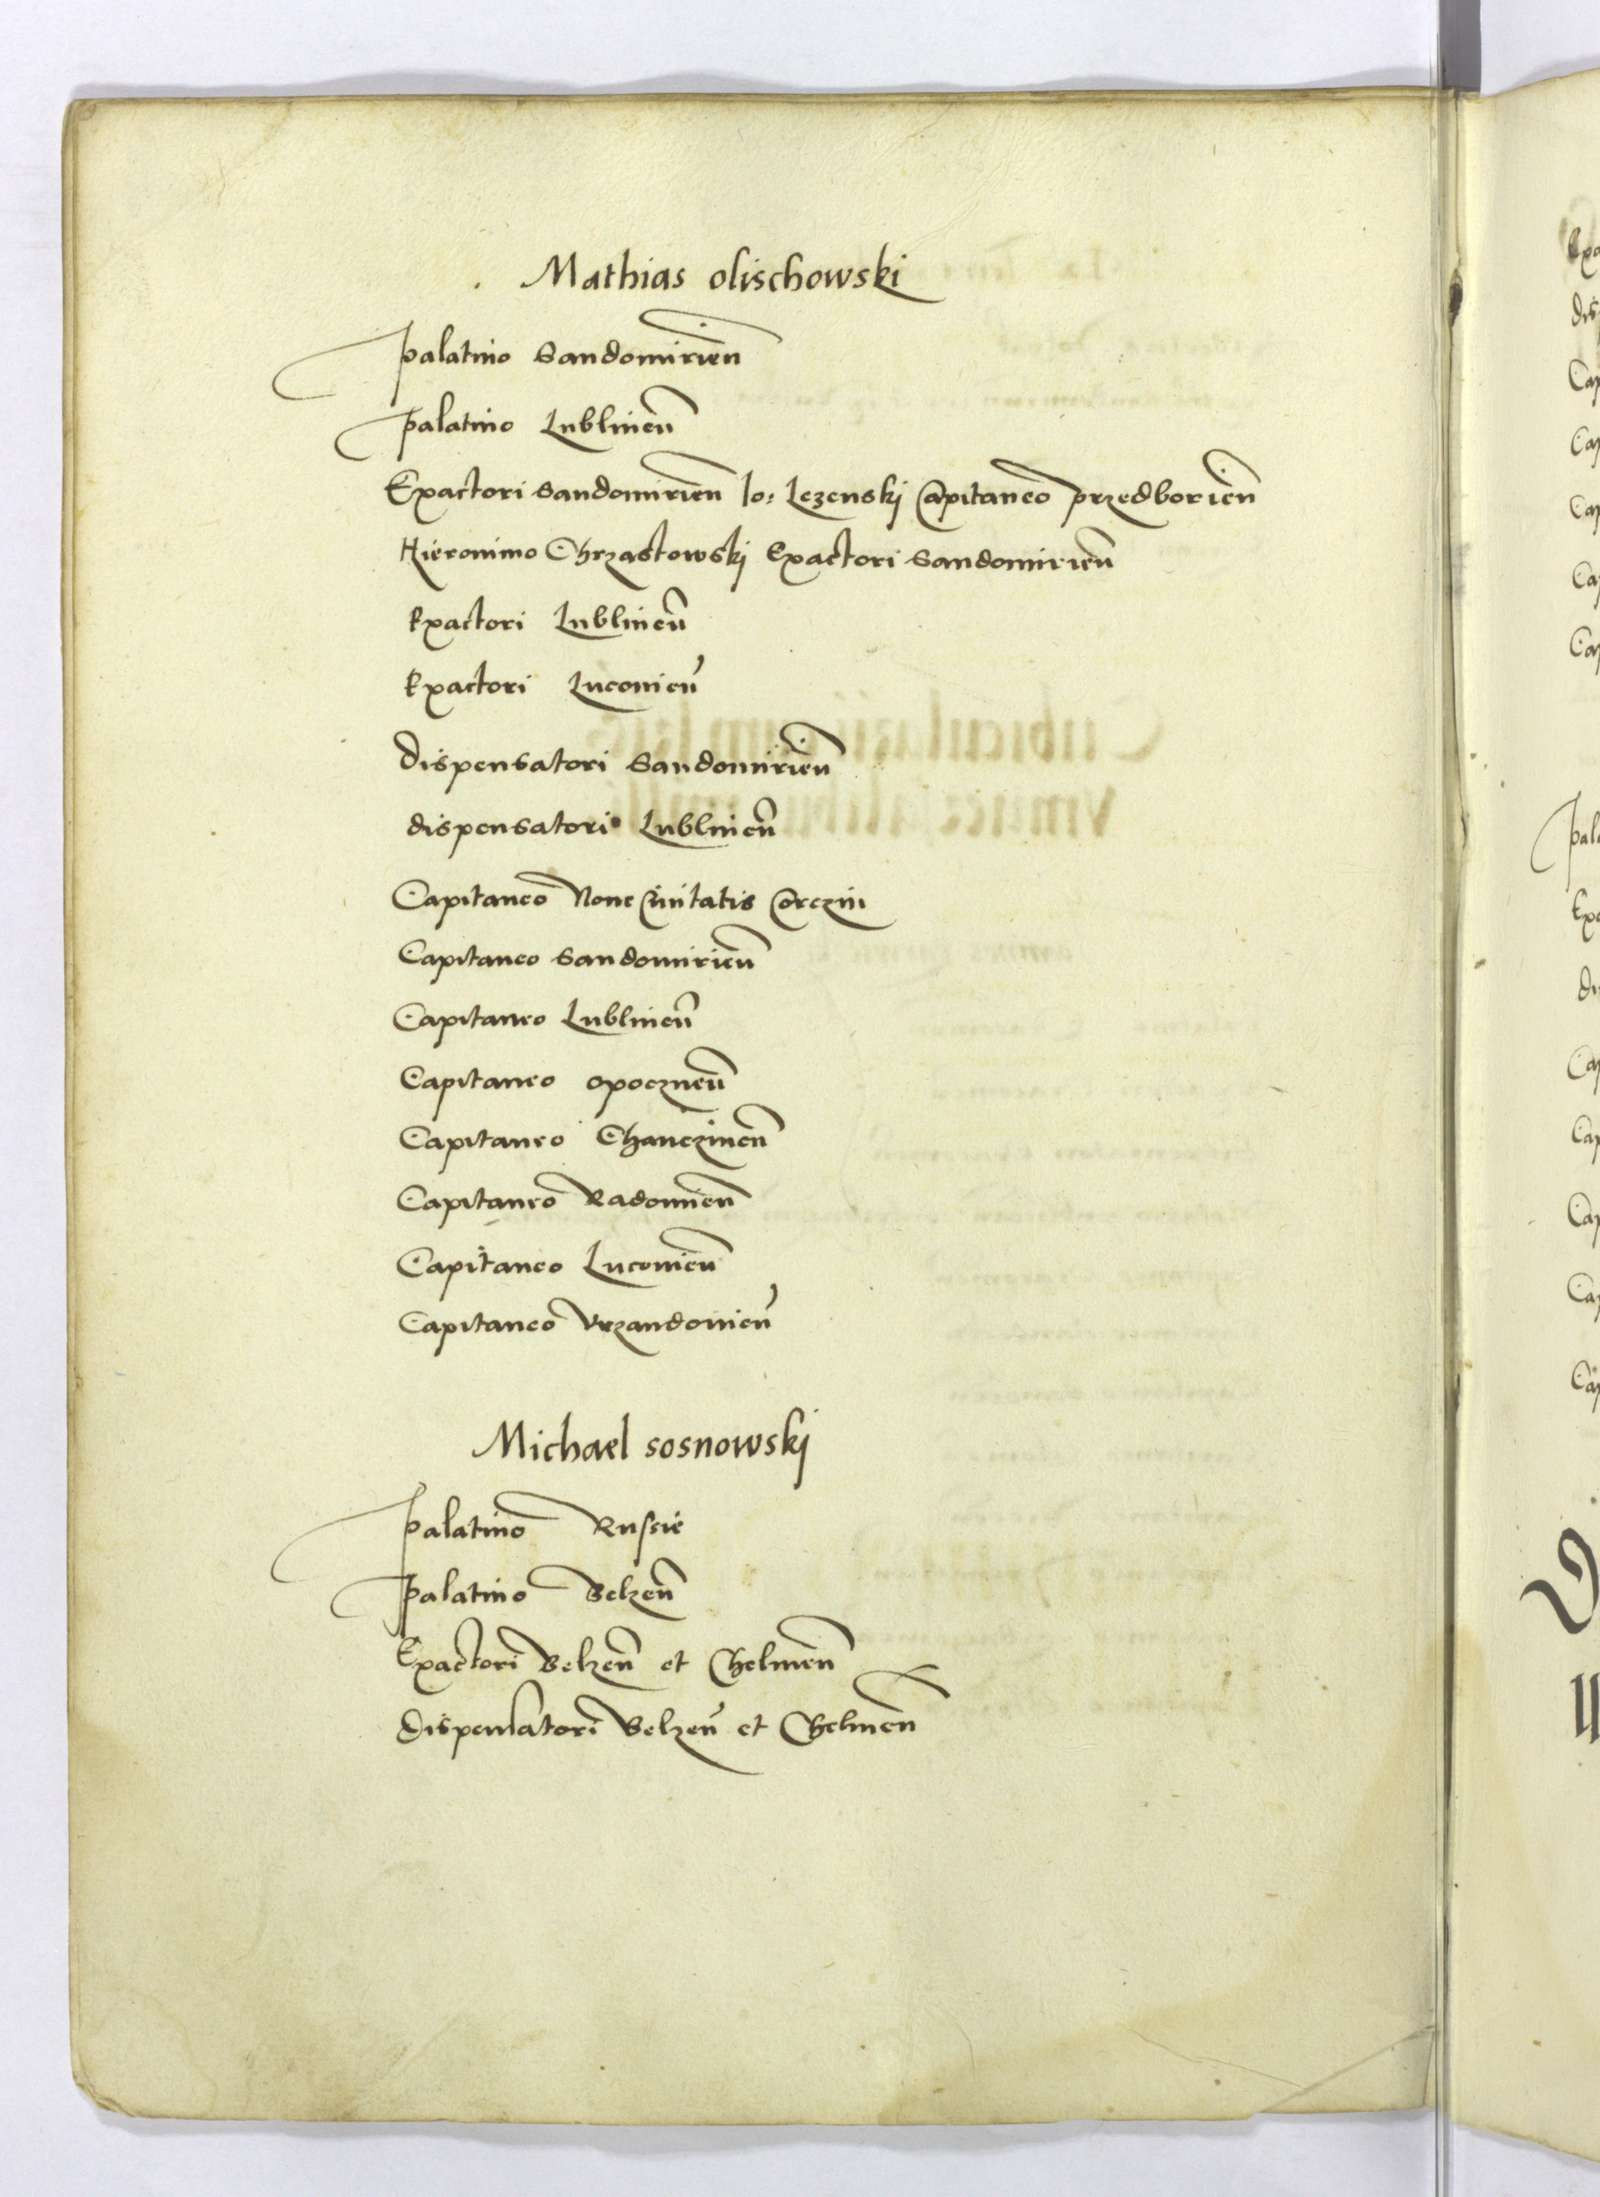 Mathias olischowski
palatino Sandomirien
palatino Lublinen
Exactori Sandomirien Io: Lezenski Capitaneo przedborien
Hieronimo Chrzastowski Exactori Sandomirien
Exactori Lublinen
Exactori Luconien
Dispensatori Sandomirien
dispensatori Lublinen
Capitaneo Noue Ciuitatis Corczin
Capitaneo Sandomirien
Capitaneo Lublinen
Capitaneo opocznen
Capitaneo Chanczinen
Capitaneo Radomien
Capitaneo Luconien
Capitaneo Vrzandouien
Michael sosnowski
palatino Russie
palatino Belzen
Exactori Belzen et Chelmen
dispensatori Belzen et Chelmen